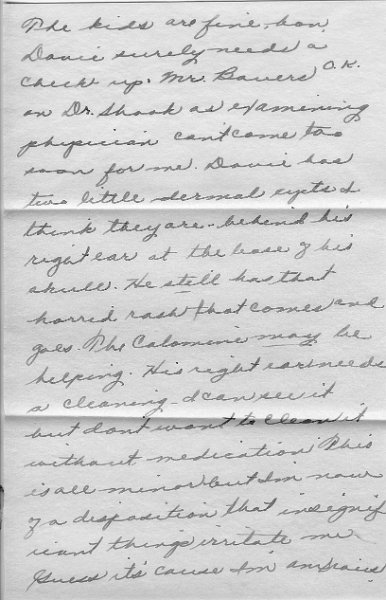 The kids are fine, hon,
Davie surely needs a
check up. Mr. Bavers' O.K.
on Dr. Shook as examining
physician can't come too
soon for me. Davie has
two little dermal cysts I
think they are - behind his
right ear at the base of his
skull. He still has that
horrid rash that comes and
goes. The Calomine may be
helping. His right ear needs
a cleaning - I can see it
but dont want to clean it
without medication. This
is all minor but I'm now
of a disposition that insignif
icant things irritate me
Guess it's cause I'm